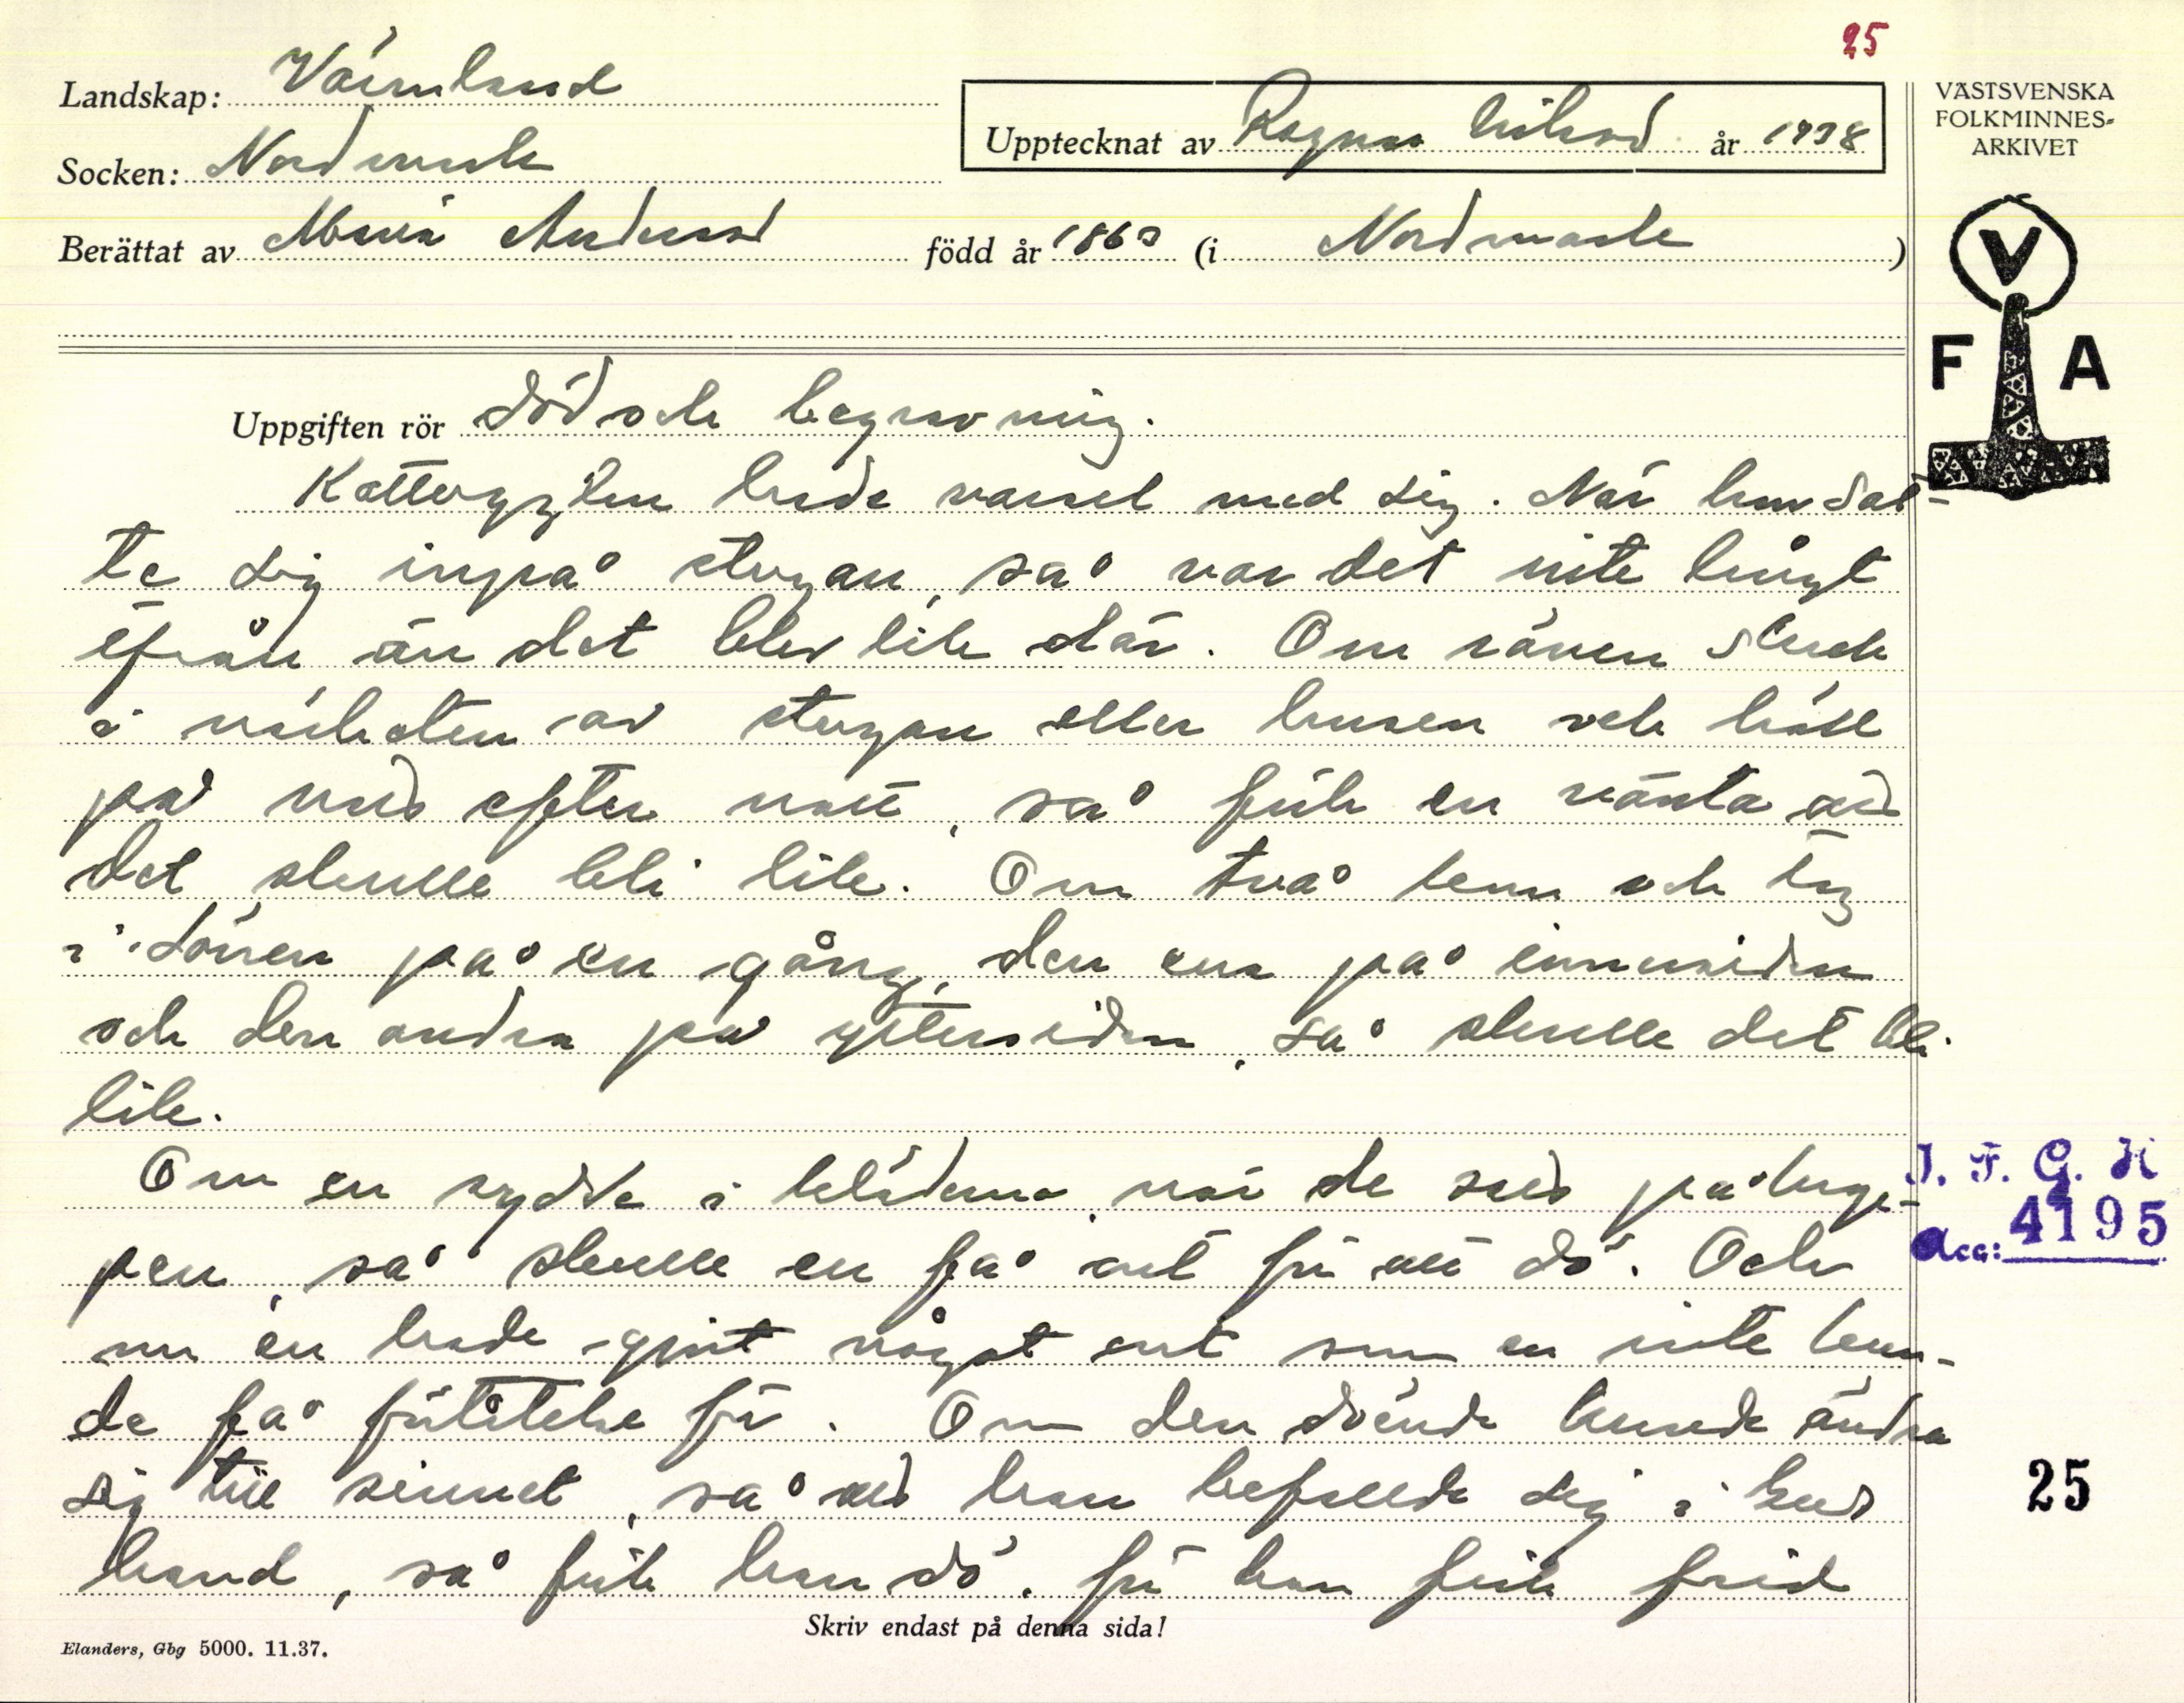 25
Landskap: Värmland
Socken: Nordmark
Upptecknat av Ragnar Nilsson år 1938
Berättat av Maria Andersson född år 1863 (i Nordmark)
VÄSTSVENSKA
FOLKMINNES-
ARKIVET
V
F A
Uppgiften rör död och begravning.
Kattugglan hade varsel med sig. När hon sat-
te sig inpå stugan, så var det inte långt
ifrån än det blev lik där. Om räven skrek
i närheten av stugan eller husen och höll
på natt efter natt, så fick en vänta att
det skulle bli lik. Om två kom och tog
i dörren på en gång, den ena på innersidan
och den andra på yttersidan, så skulle det bli
lik.
Om en rydde i kläderna när de satt på krop-
pen, så skulle en få ont för att dö. Och
om en hade gjort något ont som en inte kun-
de få förlåtelse för. Om den döende kunde ändra
sig till sinnet, så att han befallde sig i Guds
hand, så fick han dö, för han fick frid
I. F. G. H
Acc: 4195
25
Skriv endast på denna sida!
Elanders, Gbg 5000. 11.37.